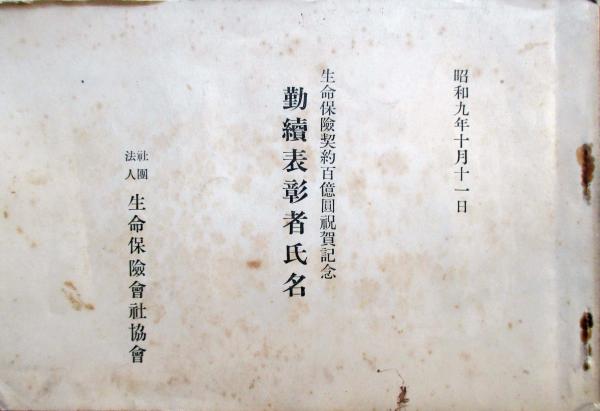 昭和九年十月十一日
生命保險契約百億圓祝賀記念
勤續表彰者氏名
社團法人 生命保險會社協會